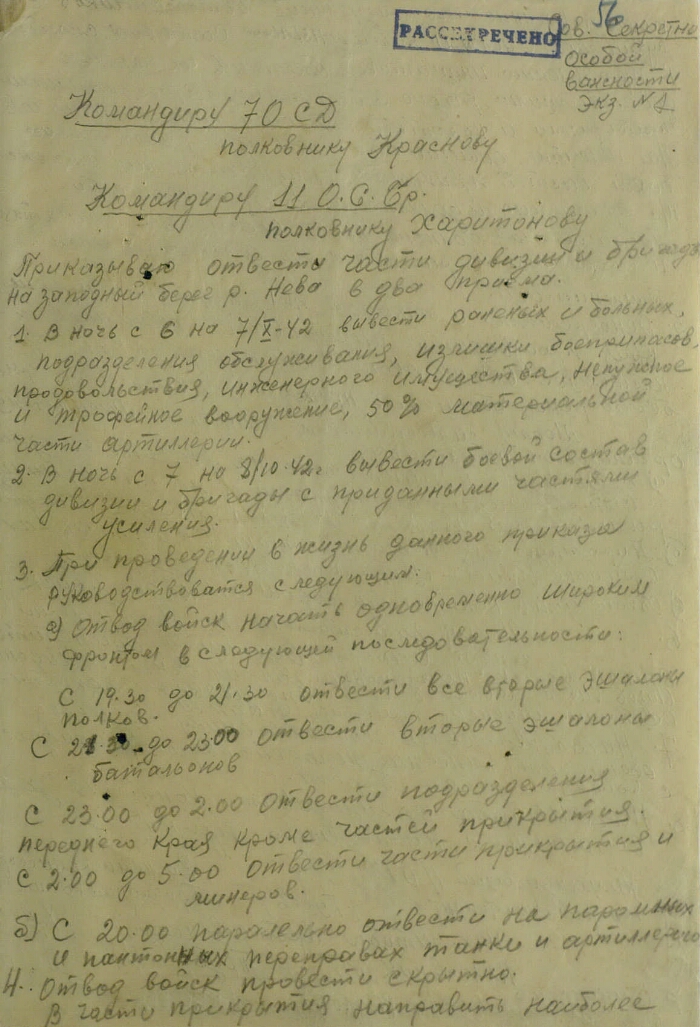 56
РАССЕКРЕЧЕНО
Сов. Секретно
Особой
важности
Экз. №1
Командиру 70 СД
полковнику Краснову
Командиру 11 О.С.Бр.
полковнику Харитонову
Приказываю отвести части дивизии и бригады
на западный берег р. Нева в два приема.
1. В ночь с 6 на 7/X-42 вывести раненых и больных,
подразделения обслуживания, излишки боеприпасов,
продовольствия, инженерного имущества, ненужное
и трофейное вооружение, 50% материальной
части артиллерии.
2. В ночь с 7 на 8/10.42г вывести боевой состав
дивизии и бригады с приданными частями
усиления.
3. При проведении в жизнь данного приказа
руководствоватся следующим:
а) Отвод войск начать одновременно широким
фронтом в следующей последовательности:
С 19.30 до 21.30 отвести все вторые эшалоны
полков.
С 21.30 до 23.00 отвести вторые эшалоны
баталъонов
С 23.00 до 2.00 Отвести подразделения
переднего края кроме частей прикрытия.
С 2.00 до 5.00 Отвести части прикрытия и
минеров.
б) С 20.00 паралельно отвести на паромных
и пантонных переправах танки и артиллерию
4. Отвод войск провести скрытно.
В части прикрытия направить наиболее